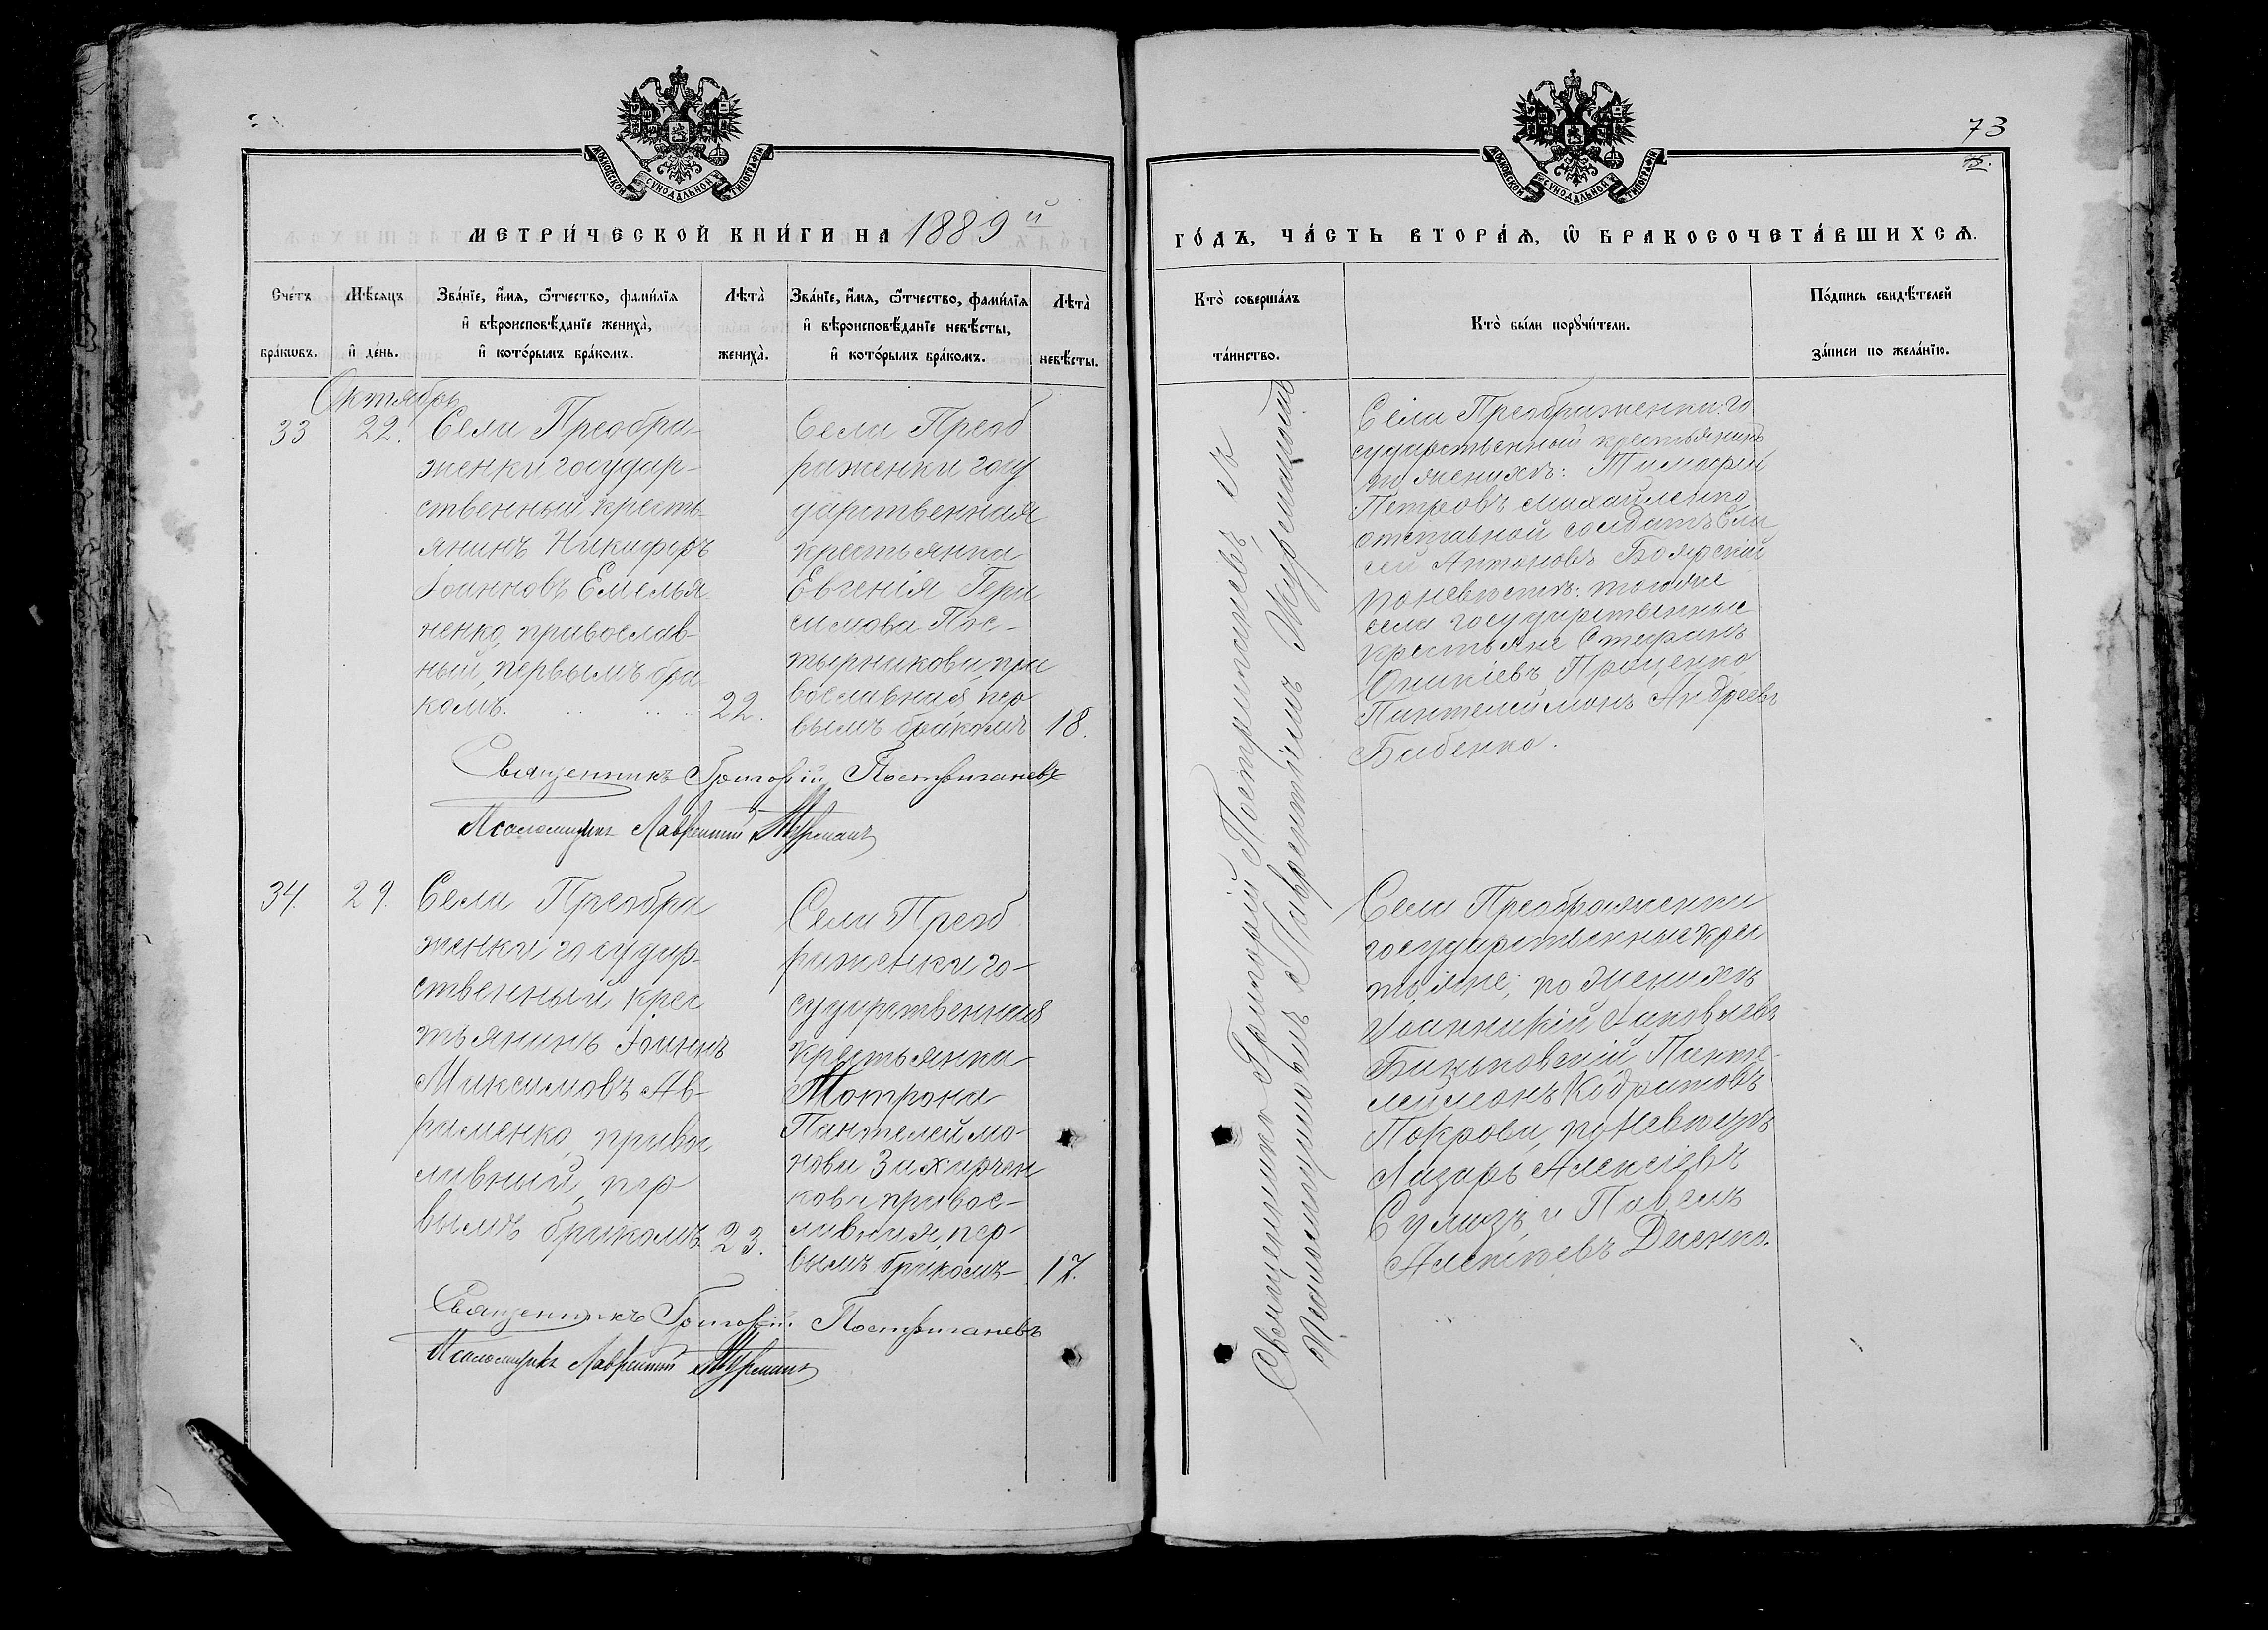 МОСКОВСКОЙ СѴНОДАЛЬНОЙ ТИПОГРАФІИ
МЕТРИ́ЧЕСКОЙ КНИ́ГИ НА 1889 й
Сче́тъ бра́кѡвъ.
Мѣ́сяцъ и҆ де́нь.
Зва́нїе, и҆́мѧ, ѻ҆́тчество, фами́лїѧ
и҆ вѣроисповѣ́данїе жениха̀,
и҆ кото́рымъ бра́комъ.
Лѣта̀ жениха̀.
Зва́нїе, и҆́мѧ, ѻ҆́тчество, фами́лїѧ
и҆ вѣроисповѣ́данїе невѣ́сты,
и҆ кото́рымъ бра́комъ.
Лѣта̀ невѣ́сты.
Октябрь
33
22.
Села Преобра-
женки государ-
ственный кресть-
янинъ Никифоръ
Іоанновъ Емелья
ненко, православ-
ный, первымъ бра
комъ.
22.
Села Преоб
раженки госу
дарственная
крестьянка
Евгенія Гера
симова Пос-
тырникова, пра
вославная, пер
вымъ бракомъ
18.
Священникъ Григорій Постриганевъ
Псаломщикъ Лаврентій
34.
29.
Села Преобра
женки государ-
ственный крес
тьянинъ Іоаннъ
Максимовъ Ав-
раменко, правос
лавный, пер
вымъ бракомъ
23.
Села Преоб
раженки го-
сударственная
крестьянка
Мотрона
Пантелеймо-
нова Захарчен
кова правос-
лавная, пер-
вымъ бракомъ
17.
Священникъ Григорій Постриганевъ
Псаломщикъ Лаврентій
73
МОСКОВСКОЙ СѴНОДАЛЬНОЙ ТИПОГРАФІИ
ГО́ДЪ, ЧА́СТЬ ВТОРА́Ѧ, Ѡ҆ БРАКОСОЧЕТА́ВШИХСѦ.
Кто̀ соверша́лъ
та́инство.
Кто̀ бы́ли порꙋчи́тели.
По́дпись свидѣ́телей
за́писи по жела́нїю.
Священникъ Григорій Постриганевъ съ
Псаломщикомъ Лаврентіемъ
Села Преображенки го
сударственный крестьянинъ
по женихѣ: Тимофей
Петровъ Михайленко
отставной солдатъ Ели
сей Антоновъ Боярскій
по невѣстѣ: тогоже
села государственные
крестьяне Стефанъ
Оникіевъ Проценко
Пантелеймонъ Андреевъ
Бабенко.
Села Преображенки
государственные крес
тьяне; по женихѣ
Іоанникій Яковлевъ
Панте-
леймонъ Кодратовъ
Покрова, по невѣстѣ
Лазарь Алексіевъ
и Павелъ
Алексіевъ